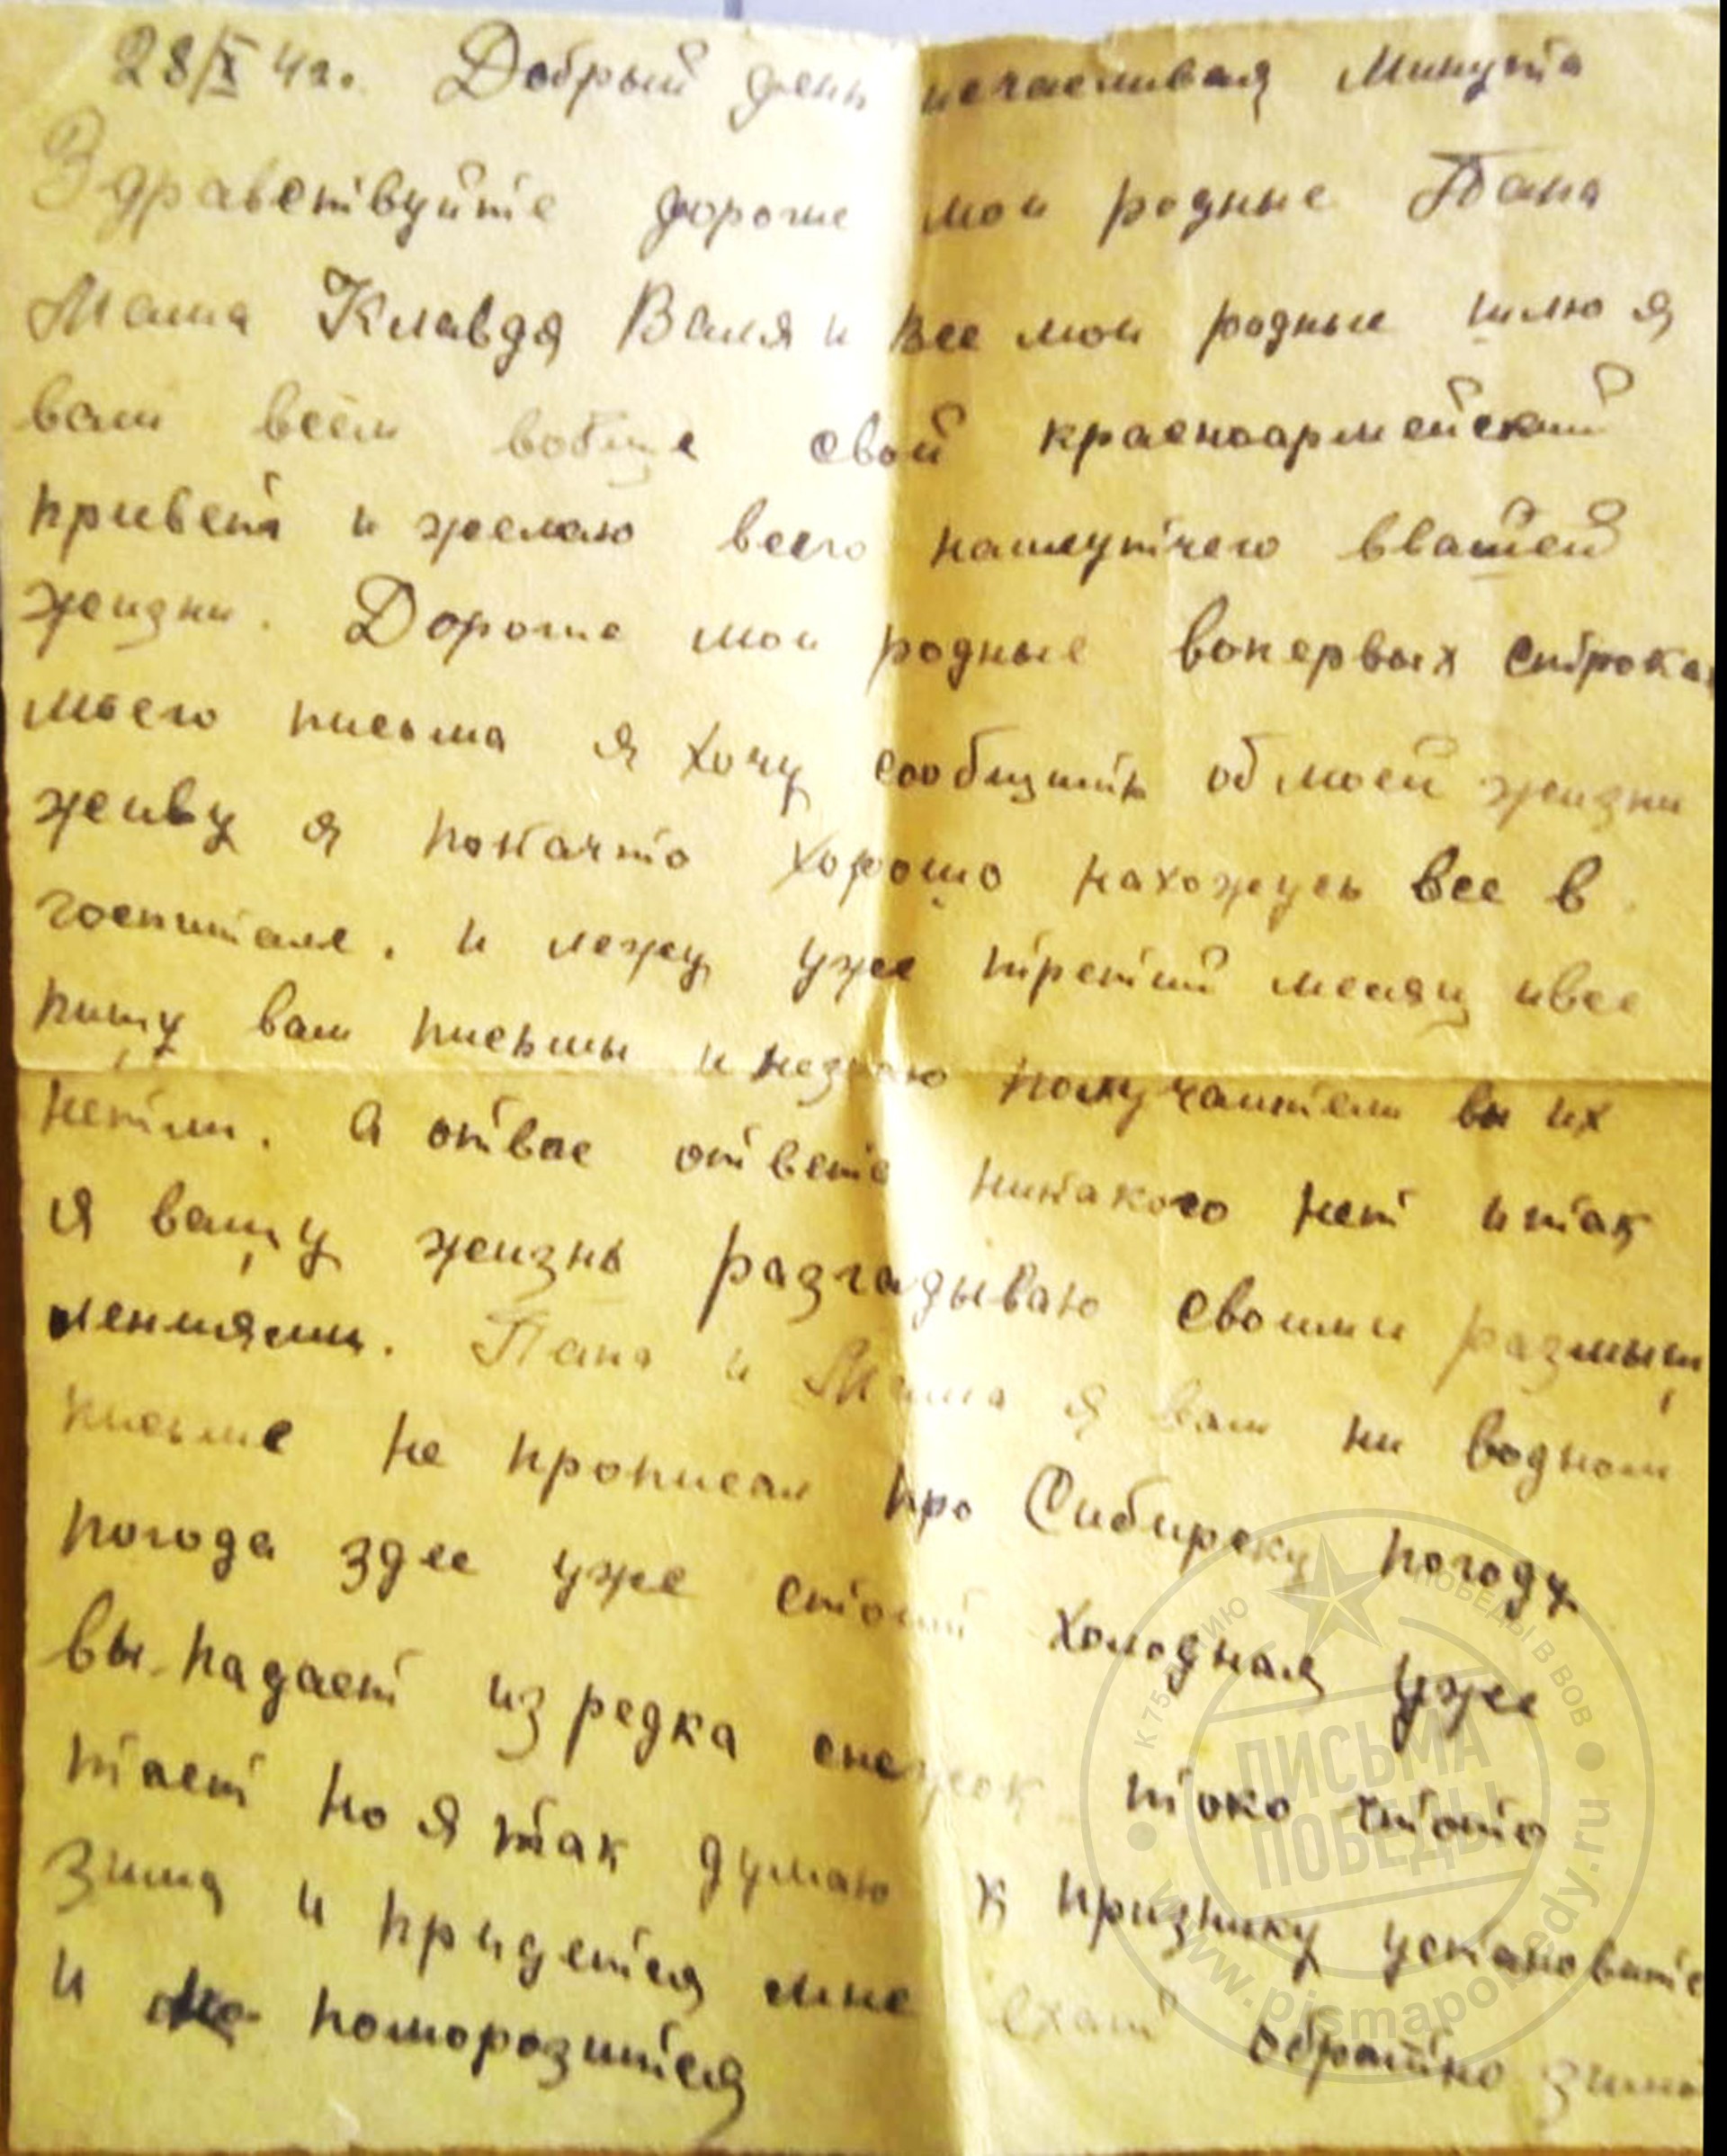 28/X 42г. Добрый день исчасливая Минута
Здравствуйте дорогие мои родные Папа
Мама Клавдя Валя и все мои родные шлю я
вам всем вобще свой красноармейский
привет и желаю всего нашлутчего ввашей
жизни. Дорогие мои родные вопервых строках
моего письма я хочу сообщить об моей жизни
живу я покачто хорошо нахожусь все в
госпитале. и лежу уже третий месяц ивсе
пишу вам письмы и незнаю получаители вы их
нетли. а отвас ответа никакого нет итак
я вашу жизнь разгадываю своими размыш
лениями. Папа и Мама я вам ни водном
письме не прописал про Сибирску погоду
погода здес уже стоит холодная уже
вы-падает из редка снежок токо чтото
тает но я так думаю к призднику установитс
зима и придется мне ехат обратно зимой
и поморозится
К 75-ЛЕТИЮ ПОБЕДЫ В ВОВ
ПИСЬМА ПОБЕДЫ
www.pismapobedy.ru